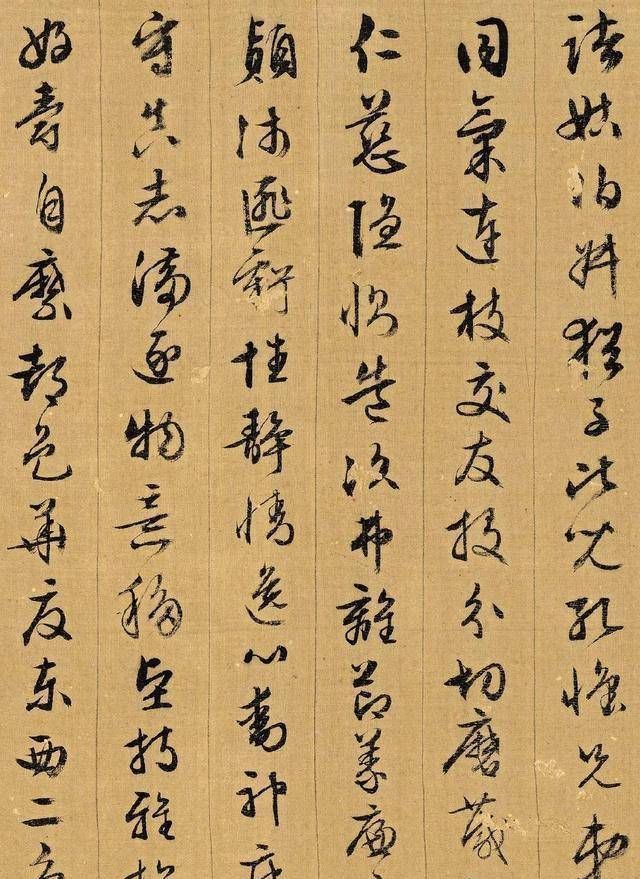 諸姑伯叔猶子比兒孔懷兄弟
同氣連枝交友投分切磨箴
仁慈隱惻造次弗離節義廉
顛沛匪虧性靜情逸心動神疲
守真志滿逐物意移堅持雅操
好爵自縻都邑華夏東西二京